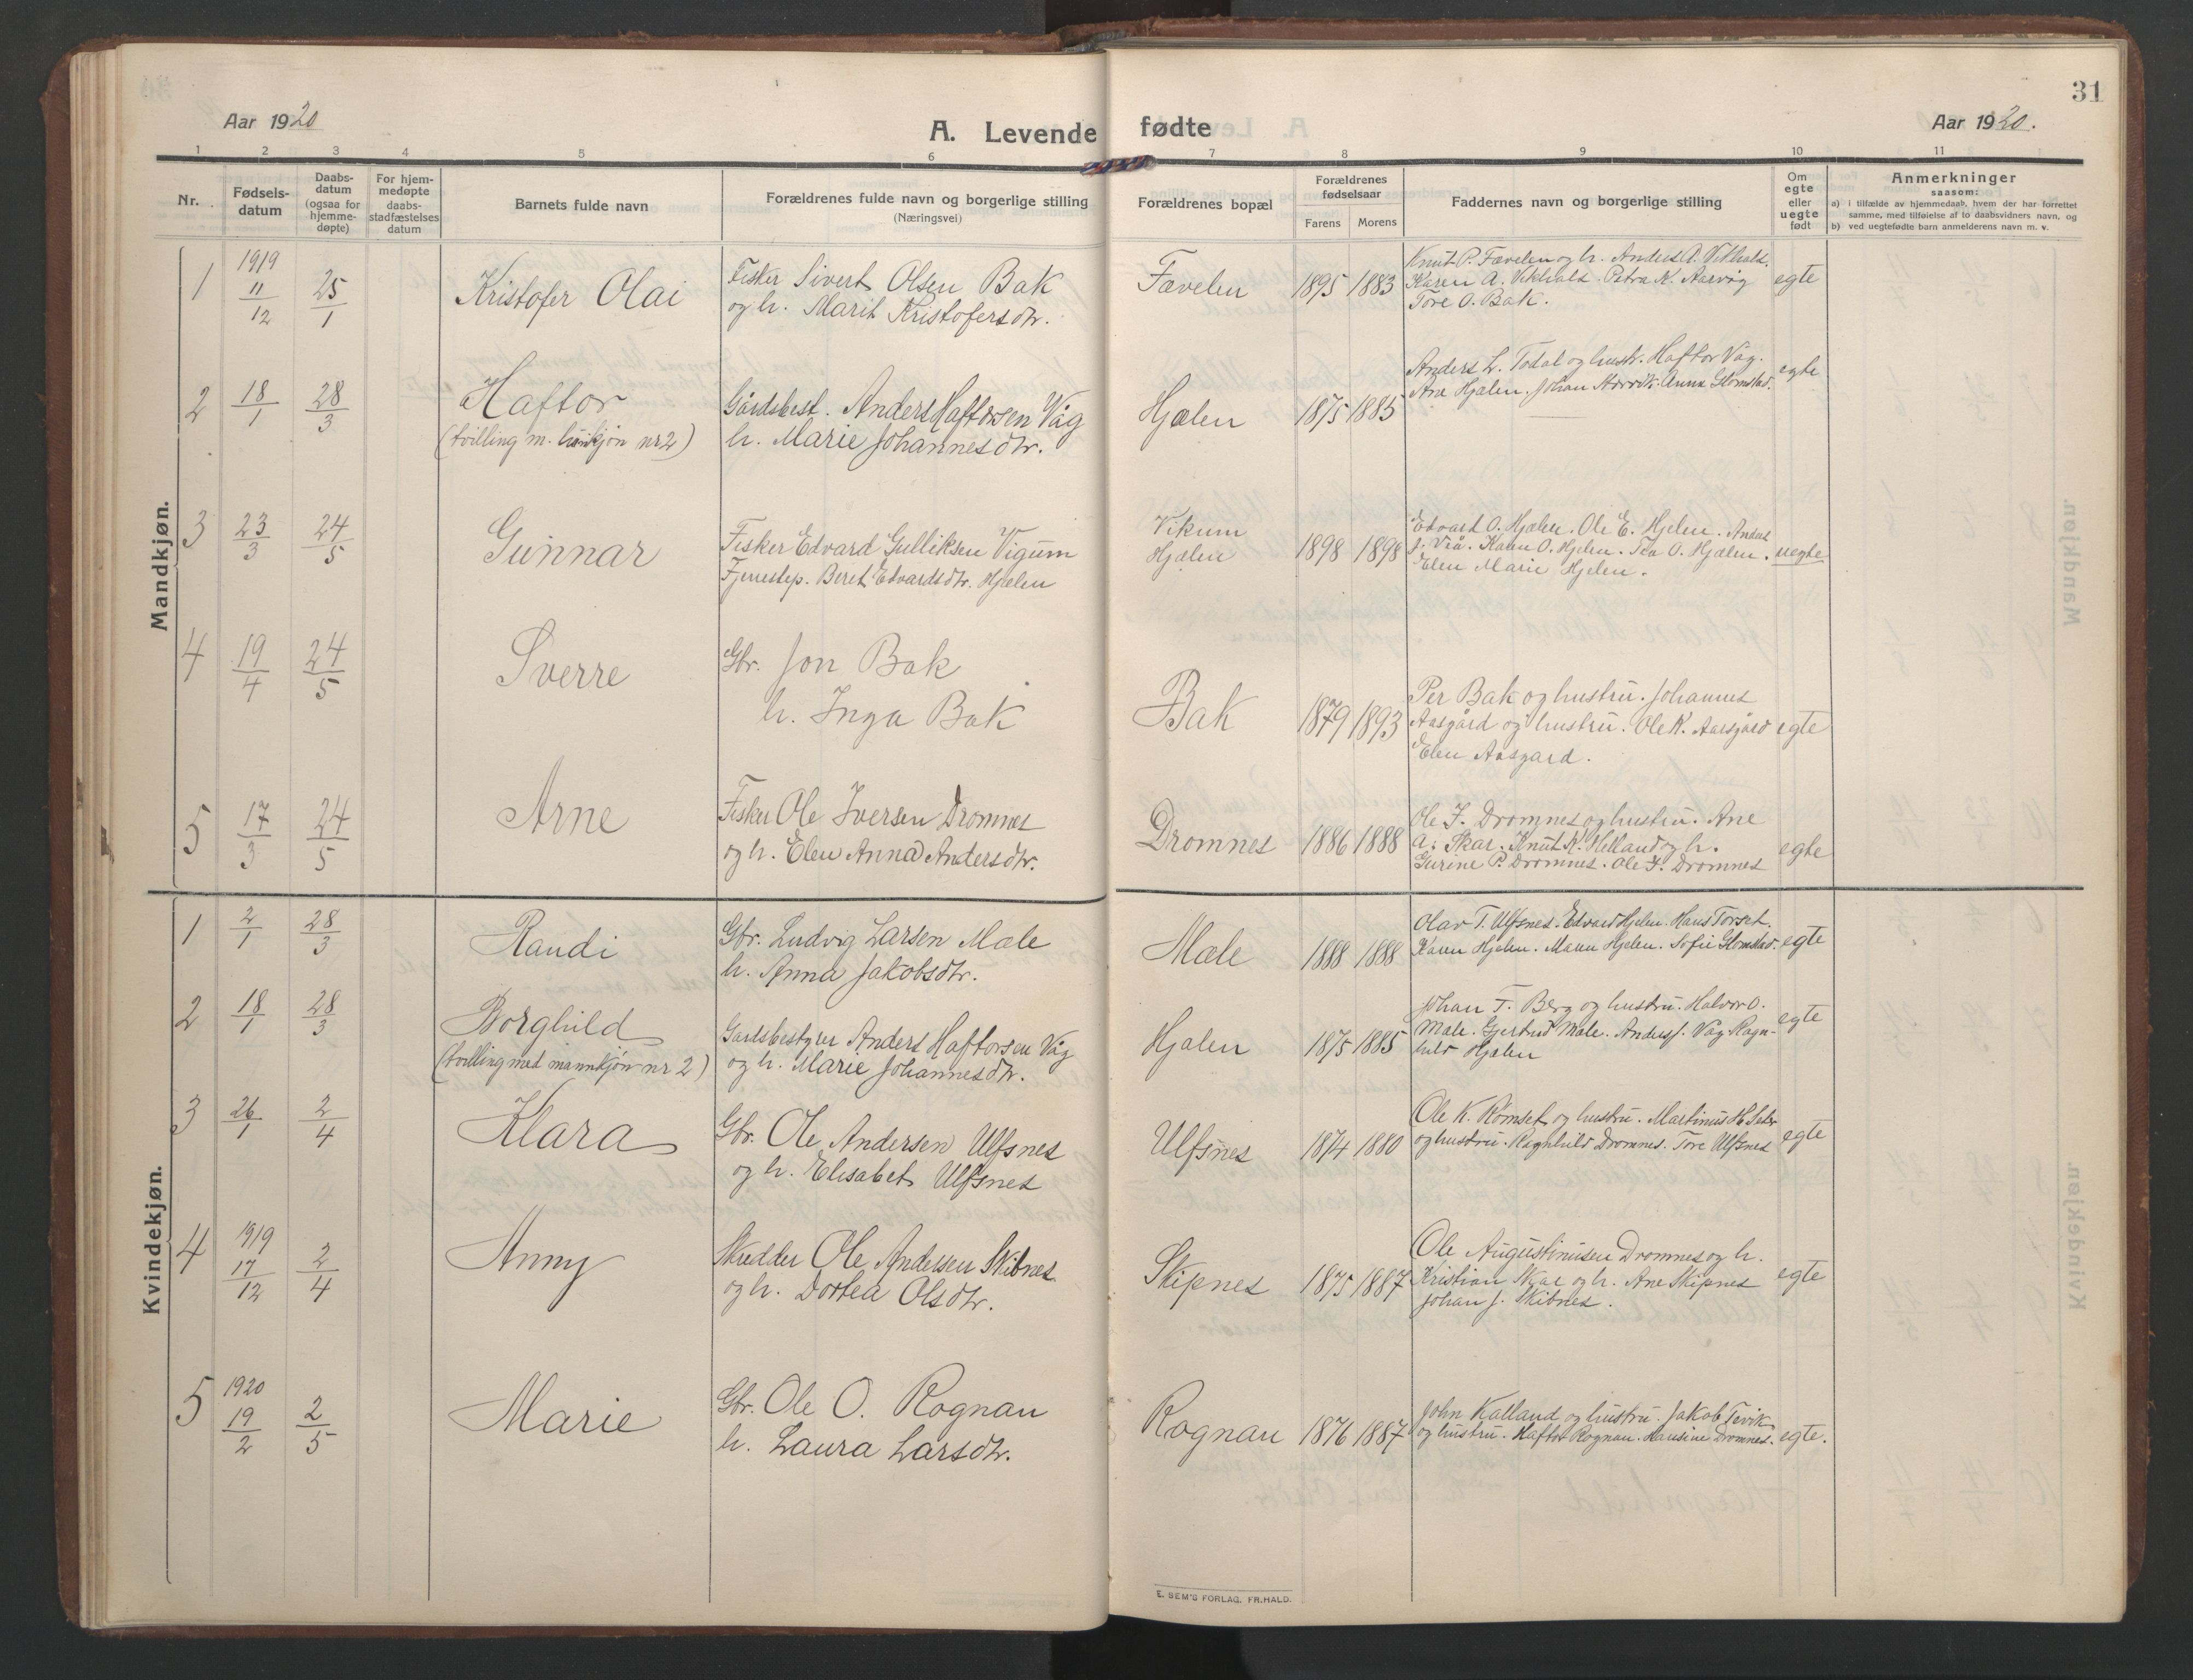 31
Aar 1920
A. Levende fødte
Aar 1920.
1 2 3 4 5 6 7 8 9 10 11
Nr.
Fødsels-
datum
Daabs-
datum
(ogsaa for
hjemme-
døpte)
For hjem-
medøpte
daabs-
stadfæstelses
datum
Barnets fulde navn
Forældrenes fulde navn og borgerlige stilling
(Næringsvei)
Forældrenes bopæl
Forældrenes
fødselsaar
Farens Morens
Faddernes navn og borgerlige stilling
Om
egte
eller
uegte
født
Anmerkninger
saasom:
a) i tilfælde av hjemmedaab, hvem der har forrettet
samme, med tilføielse af to daabsvidners navn, og
b) ved uegtefødte barn anmelderens navn m. v.
Mandkjøn.
1
1919
11/12
25/1
Kristofer Olai
Fisker Sivert Olsen Bak
og h. Marit Kristofersdtr.
Fævelen
1895 1883
Knut P. Fævelen og h. Anders A. Vikhals.
Karen A. Vikhals. Petra K. Aarvåg
Tore O. Bak.
egte
2
18/1
28/3
Haftor
(tvilling m. kvinkjøn nr 2)
Gårdsbest. Anders Haftorsen Våg
h. Marie Johannesdtr.
Hjælen
1875 1885
Anders L. Todal og hustr. Haftor Våg.
Ane Hjalen. Johan Aarvik. Anna Glomstad.
egte
3
23/3
24/5
Gunnar
Fisker Edvard Gulliksen Vigum
Tjenestep. Beret Edvardsdtr. Hjelen
Vikum
Hjælen
1898 1898
Edvard O. Hjælen. Ole E. Hjelen. Anders
J. Vrå. Karen O. Hjelen. O. Hjælen.
Elen Marie Hjelen.
uegte
4
19/4
24/5
Sverre
Gbr. Jon Bak
h. Inga Bak
Bak
1879 1893
Per Bak og hustru. Johannes
Aasgård og hustru. Ole K. Aasgård
Elen Aasgard.
egte
5
17/3
24/5
Arne
Fisker Ole Iversen Dromnes
og h. Elen Anna Andersdtr.
Dromnes
1886 1888
Ole I. Dromnes og hustru. Ane
A. Skar. Knut K. Helland og h.
Gurine P. Dromnes. Ole I. Dromnes
egte
Kvindekjøn.
1
2/1
28/3
Randi
Gbr. Ludvig Larsen Mæle
h. Anna Jakobsdtr.
Mæle
1888 1888
Olav T. Ulfsnes. Edvard Hjelen. Hans Torset.
Karen Hjelen. Maren Hjelen. Sofie Glomstad.
egte
2
18/1
28/3
Borghild
(tvilling med mannkjøn nr 2)
Gardsbestyrer Anders Haftorsen Våg
og h. Marie Johannesdtr.
Hjalen
1875 1885
Johan T. Berg og hustru. Halvor O.
Mæle. Gjertrud Mæle. Anders J. Våg Ragn-
hild Hjælen
egte
3
26/1
2/4
Klara
Gbr. Ole Andersen Ulfsnes
og h. Elisabet Ulfsnes
Ulfsnes
1874 1880
Ole K. Romset og hustru. Martinus H. Seter
og hustru. Ragnhild Dromnes. Tore Ulfsnes
egte
4
1919
17/12
2/4
Anny
Skredder Ole Andersen Skibnes
og h. Dortea Olsdtr.
Skipnes
1875 1887
Ole Augustinusen Dromnes og h.
Kristian Skar og h. Ane Skipnes
Johan J. Skibnes.
egte
5
1920
19/2
2/5
Marie
Gbr. Ole O. Rognan
h. Laura Larsdtr.
Rognan
1876 1887
John Kalland og hustru. Jakob Tevik
og hustru. Haftor Rognan. Hansine Dromnes.
egte.
E. SEM'S FORLAG, FR.HALD.